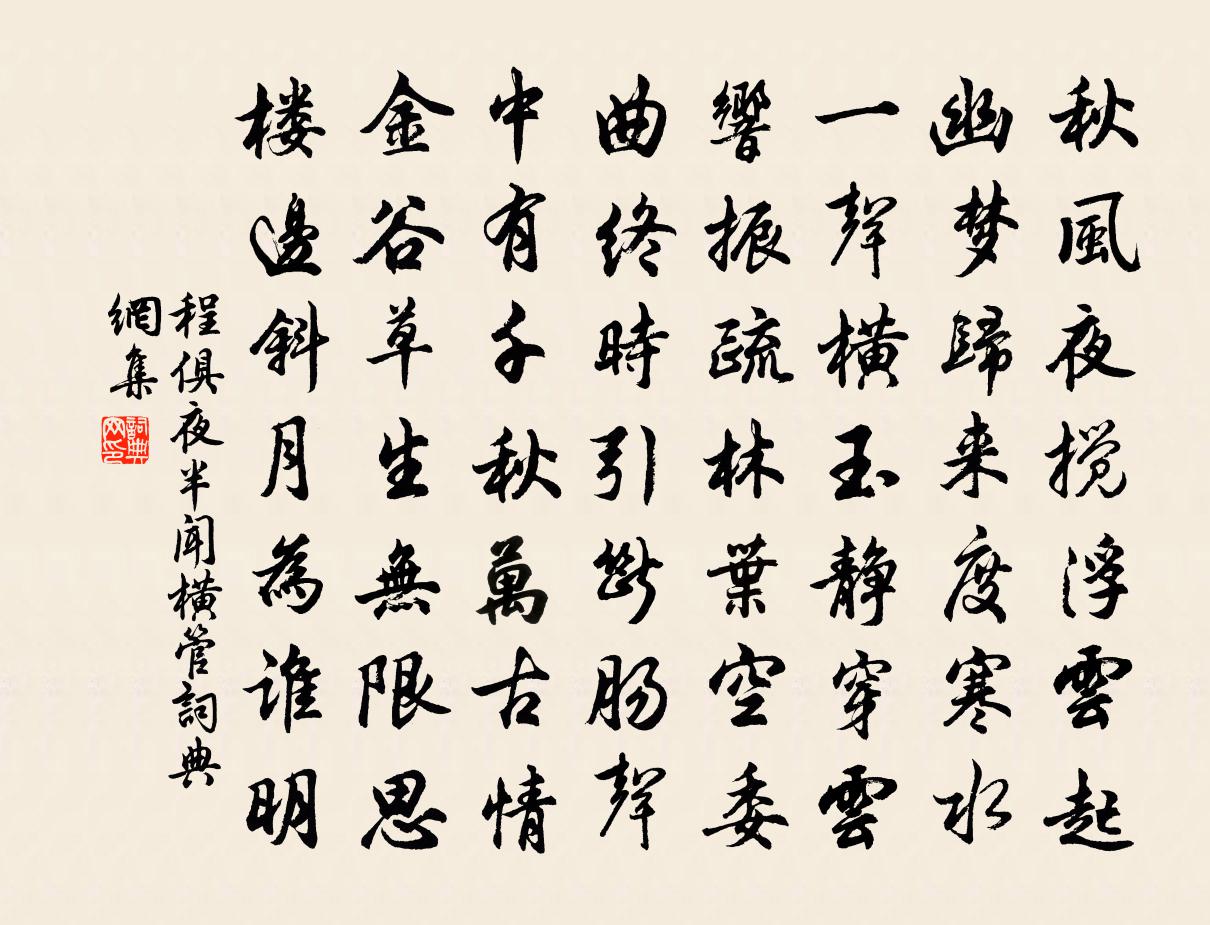 秋風夜搅浮雲起
幽梦歸来度寒水
一聲横玉静穿雲
響振疏林葉空委
曲終時引斷肠聲
中有千秋萬古情
金谷草生無限思
楼邊斜月為誰明
程俱夜半聞横管詞典
網集
詞典网印